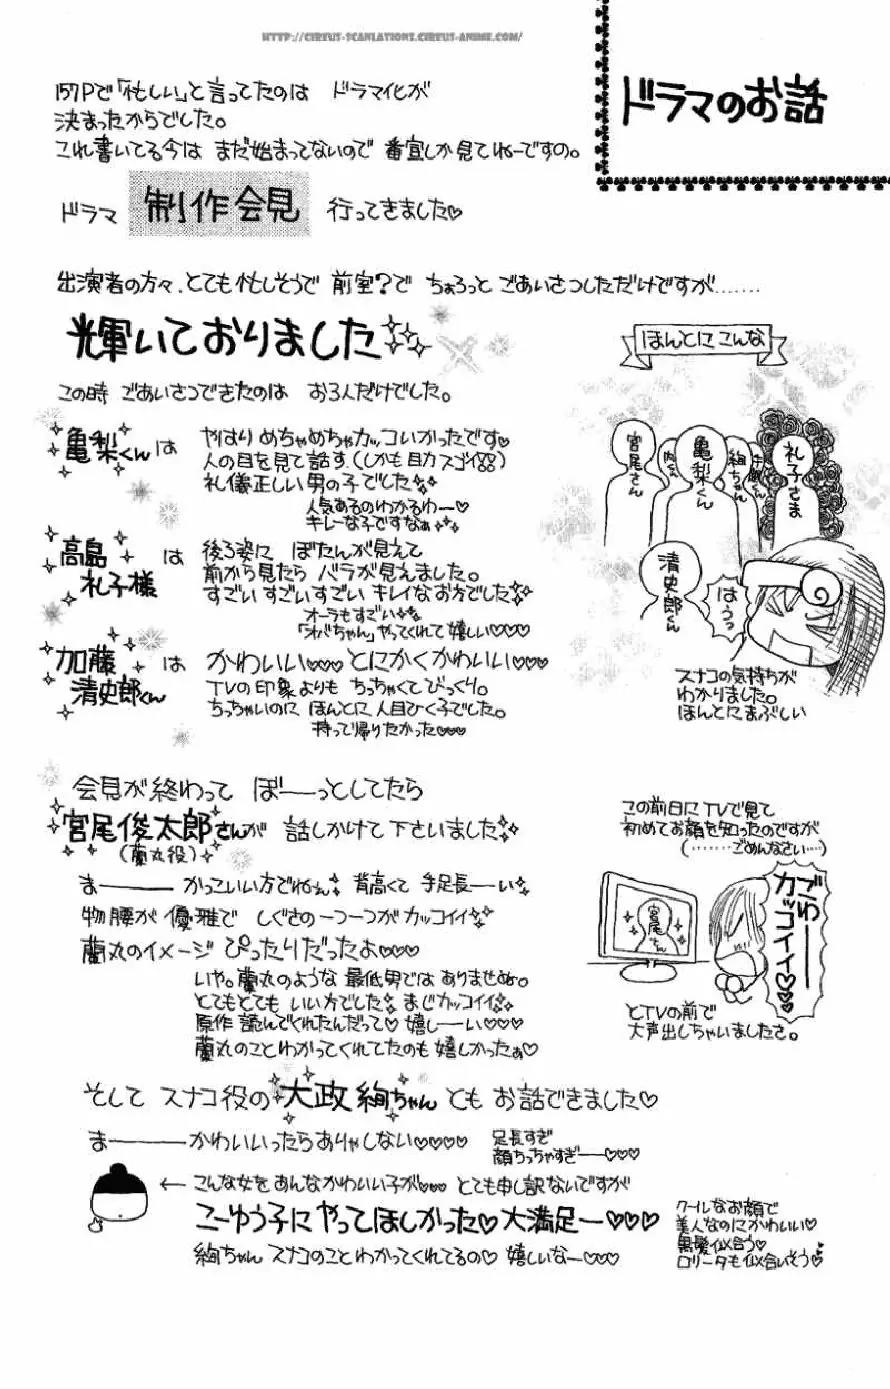 HTTP://CIRCUS-SCANLATIONS.CIRCUS-ANIME.COM/
ドラマのお話
157Pで「忙しい」と言ってたのは ドラマ化が
決まったからでした。
これ書いてる今は まだ始まってないので 番宣しか見てねーですの。
ドラマ 制作会見 行ってきました♡
出演者の方々、とても忙しそうで 前室?で ちょろっと ごあいさつしただけですが……
輝いておりました
この時 ごあいさつできたのは お3人だけでした。
亀梨くんは やはり めちゃめちゃカッコいかったです♡
人の目を見て話す。(しかも目力スゴイ)
礼儀正しい男の子でした
人気あるのわかるわー♡
キレーな子ですなぁ
高島礼子様は 後ろ姿に ぼたんが見えて
前から見たら バラが見えました。
すごい すごい すごい キレイなお方でした
オーラもすごい
「オバちゃん」やってくれて嬉しい♡♡♡
加藤清史郎くんは かわいい♡♡♡とにかくかわいい♡♡♡
TVの印象よりも ちっちゃくてびっくり。
ちっちゃいのに ほんとに人目ひく子でした。
持って帰りたかった♡♡♡
ほんとに こんな
宮尾さん
内くん
亀梨くん
絢ちゃん
手越くん
礼子さま
清史郎くん
はうっ
スナコの気持ちが
わかりました。
ほんとにまぶしい
会見が終わって ぼーーっとしてたら
宮尾俊太郎さんが 話しかけて下さいました
(蘭丸役)
まーーー かっこいい方でねぇ 背高くて 手足長ーい
物腰が 優雅で しぐさの一つ一つが カッコイイ
蘭丸のイメージ ぴったりだったよ♡♡♡
いや。蘭丸のような 最低男では ありませぬ。
とてもとても いい方でした まじカッコイイ
原作 読んでくれたんだって♡ 嬉しーい♡♡♡
蘭丸のことわかってくれてたのも 嬉しかったぁ♡
この前日にTVで見て
初めてお顔を知ったのですが
(………ごめんなさい…)
宮尾さん
ごわーーーカッコイイ♡♡♡
とTVの前で
大声出しちゃいましたさ。
そして スナコ役の 大政絢ちゃんとも お話できました♡
まーーーーかわいいったらありゃしない♡♡♡♡
足長すぎ
顔ちっちゃすぎー♡♡♡
← こんな女をあんなかわいい子が♡♡♡ とても申し訳ないですが
こーゆう子に やってほしかった♡ 大満足ー♡♡♡
絢ちゃん スナコのこと わかってくれてるの♡ 嬉しいなー♡♡♡
クールなお顔で
美人なのにかわいい♡
黒髪似合う♡
ロリータも似合いそう♡